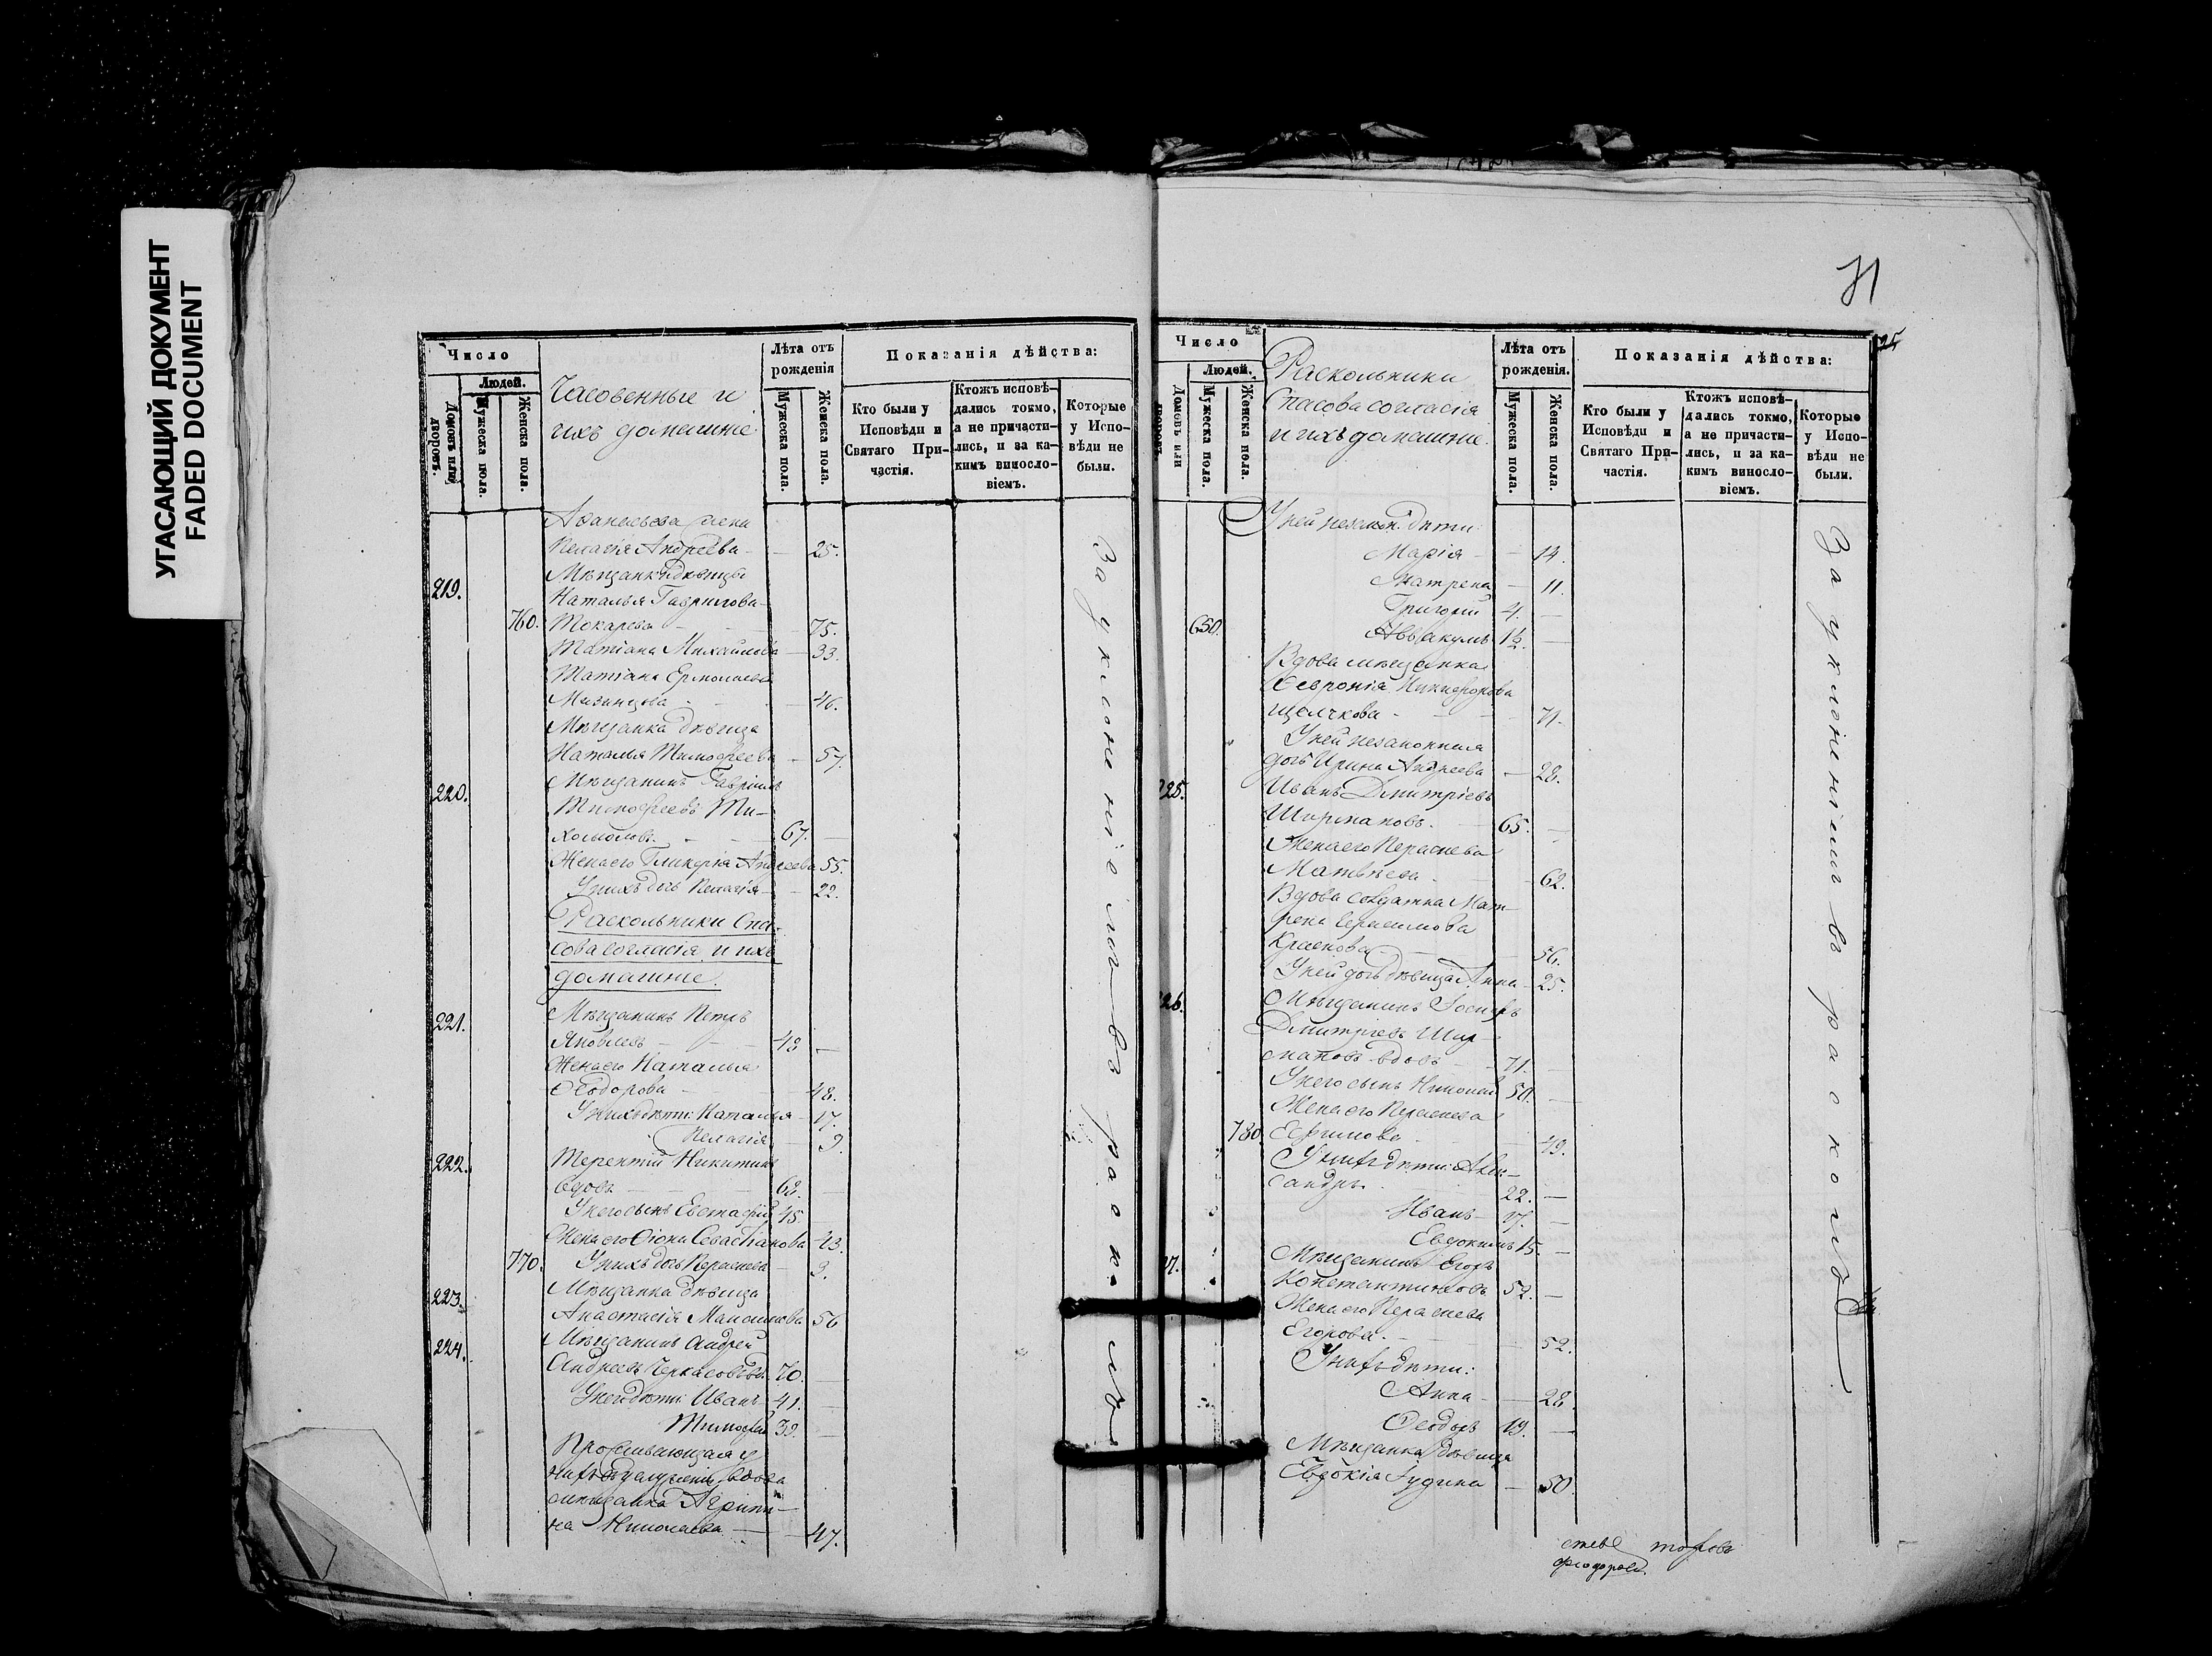 УГАСАЮЩИЙ ДОКУМЕНТ
FADED DOCUMENT
Число
Людей.
Домовъ или дворовъ.
Мужеска пола.
Женска пола.
Часовенные и
ихъ домашніе
Лѣта отъ
рожденія
Мужеска пола.
Женска пола.
Показанія дѣйства:
Кто были у
Исповѣди и
Святаго При-
частія.
Ктожъ исповѣ-
дались токмо,
а не причасти-
лись, и за ка-
кимъ винosло-
віемъ.
Которые
у Испо-
вѣди не
были.
Аѳанасьева жена
Пелагія Андреева - 25.
219. Мѣщанки дѣвицы
Наталья Гаврилова
760. Токарева - 75.
Татіана Михайлова - 33.
Татіана Ермолаева
- 46.
Мѣщанка дѣвица
Наталья Тимофеева - 57.
220. Мѣщанинъ Гавріилъ
Тимофеевъ Ти-
хомоловъ - 67. -
Жена его Гликерія Андреева 55.
У нихъ дочь Пелагія - 22.
Раскольники Спа-
сова согласія и ихъ
домашніе.
221. Мѣщанинъ Петръ
Яковлевъ - 48 -
Жена его Наталья
Ѳеодорова - 48.
У нихъ дѣти: Наталья - 17.
Пелагія - 9.
222. Терентій Никитинъ
вдовъ - 68. -
У него сынъ Евстафій 45.
Жена его Севастіанова 43.
770. У нихъ дочь Параскева - 9.
223. Мѣщанка дѣвица
Анастасія Максимова 56
224. Мѣщанинъ Андрей
Андреевъ Черкасовъ вд. 70. -
У него дѣти: Иванъ 41. -
Тимофей 39. -
Проживающая у
нихъ вдова
мѣщанка Агрипи-
на Николаева - 47.
За уклоненіемъ въ расколъ
31
25
Число
Людей.
Домовъ или дворовъ.
Мужеска пола.
Женска пола.
Раскольники
Спасова согласія
и ихъ домашніе.
Лѣта отъ
рожденія.
Мужеска пола.
Женска пола.
Показанія дѣйства:
Кто были у
Исповѣди и
Святаго При-
частія.
Ктожъ исповѣ-
дались токмо,
а не причасти-
лись, и за ка-
кимъ виносло-
віемъ.
Которые
у Испо-
вѣди не
были.
У ней дѣти:
Марія - 14.
Матрена - 11.
Григорій 4. -
650. Аввакумъ 1½. -
Вдова мѣщанка
Ѳевронія Никифорова
Щелчкова - 71.
У ней незаконная
дочь Ирина Андреева - 28.
225. Иванъ Дмитріевъ
Ширмановъ. 65. -
Жена его Параскева
Матвѣева - 62.
Вдова солдатка Мат-
рена Герасимова
Краснова - 56.
У ней дочь дѣвица Анна - 25.
226. Мѣщанинъ Іосифъ
Дмитріевъ Шир-
мановъ вдовъ - 71. -
У него сынъ Николай 50. -
Жена его Параскева
780. Ефимова - 49.
У нихъ дѣти: Алек-
сандръ. 22. -
Иванъ 17. -
Евдокимъ 15. -
27. Мѣщанинъ Егоръ
Константиновъ 52. -
Жена его Параскева
Егорова. - 52.
У нихъ дѣти:
Анна - 28.
Ѳеодоръ 19. -
Мѣщанка дѣвица
Евдокія Іудина - 50.
За уклоненіемъ въ расколъ